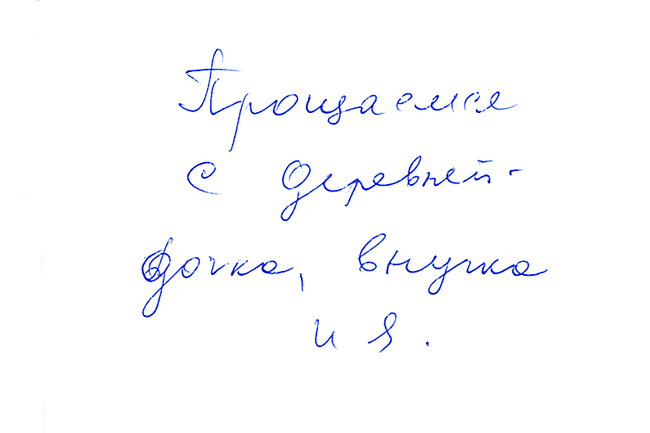 Прощаемся
с деревней-
дочка, внучка
и я.